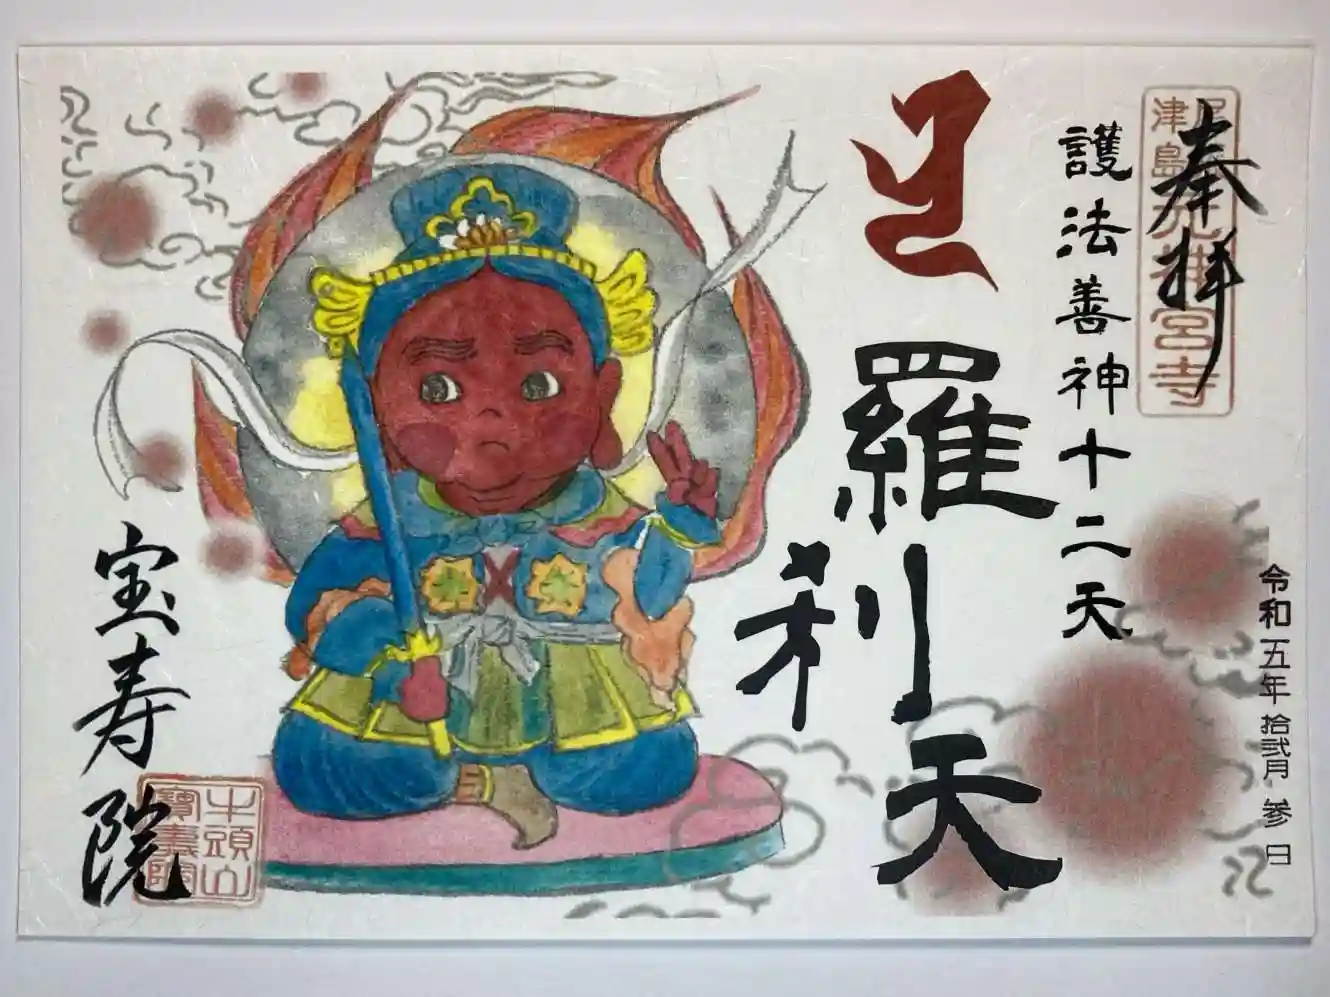 奉拝
護法善神十二天
羅刹天
令和五年拾弐月参日
宝寿院
牛頭山
寶壽院